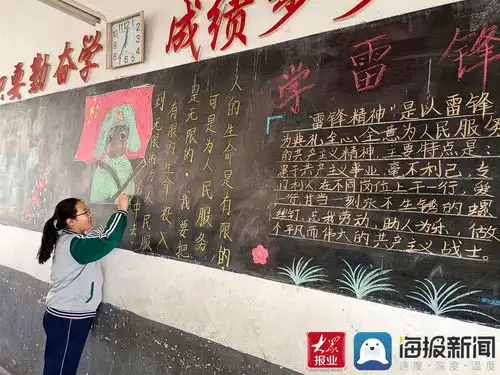 只要勤奋学
成绩
人的生命是有限的
可是为人民服务
是无限的,我要把
有限的生命投入
到无限的为人民服
学雷锋
"雷锋精神"是以雷锋
全心全意为人民服务
的共产主义精神，主要特点是：
忠于共产主义事业，毫不利己，专
门利人，在不同岗位上干一行，爱
一行，甘当一刻永不生锈的螺
丝钉，忘我劳动，助人为乐，做
个平凡而伟大的共产主义战士。
大众
报业
海报新闻
速度·深度·温度